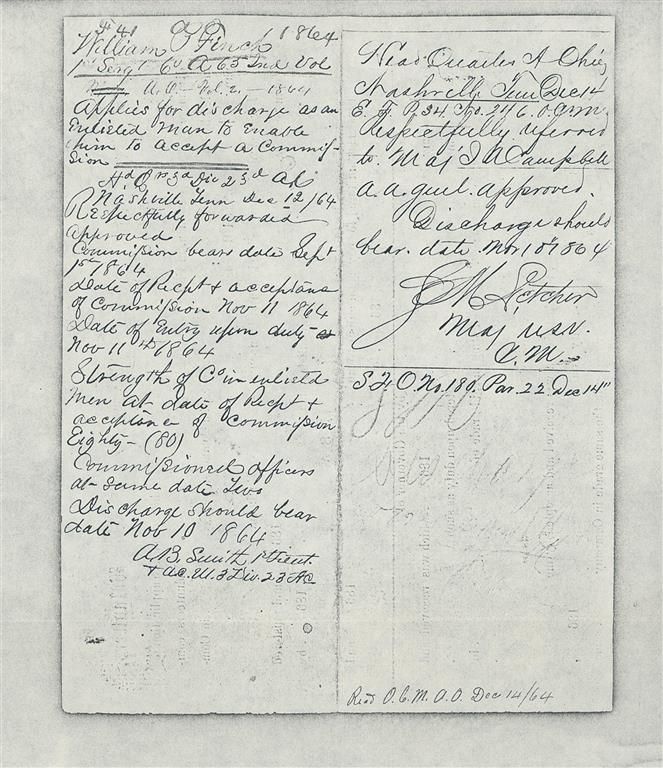 William F Finch 1864
1st Sergt Co A 63 Ind Vol
A. O. - Vol. 2. - 1864
Applies for discharge as an
Enlisted man to Enable
him to accept a Commis-
sion
Hd Qrs 3d Div 23d AC
Nashville Tenn Dec 12/64
Respectfully forwarded
approved
Commission bears date Sept
1st 1864
Date of Recpt & acceptance
of Commission Nov 11 1864
Date of Entry upon duty
Nov 11th 1864
Strength of Co in enlisted
men at date of Recpt &
acceptance of Commission
Eighty - (80)
Commissioned officers
at same date Two
Discharge should bear
date Nov 10 1864
A. B. Smith 1st Lieut
& a.c.m. 3 Div. 23 AC
Head Quarters A Ohio
Nashville Tenn Dec 14
E. F. P. 34 No. 246.
Respectfully referred
to Maj J A Campbell
a.a. genl. approved.
Discharge should
bear date Nov 10" 1864
Maj USV.
C.M.
S.F.O. No. 180. Par. 22 Dec 14"
Recd O. C. M. D. O. Dec 14/64